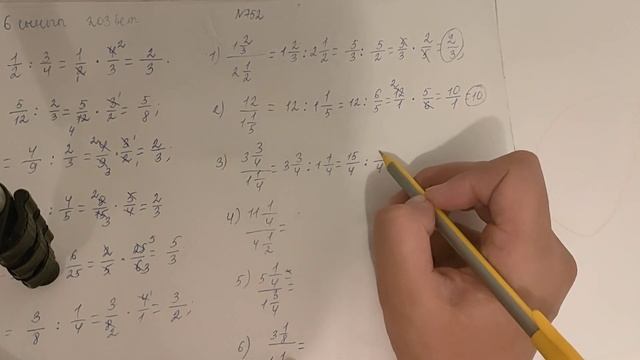 6 сынып 203 бет
№752
1/2 : 3/4 = 1/2 · 4/3 = 2/3.
5/12 : 2/3 = 5/12 · 3/2 = 5/8;
= 4/9 : 2/3 = 4/9 · 3/2 = 2/3;
: 4/5 = 8/15 · 5/4 = 2/3
6/25 = 2/5 · 25/6 = 5/3
= 3/8 : 1/4 = 3/8 · 4/1 = 3/2;
1) 1 2/3 / 2 1/2 = 1 2/3 : 2 1/2 = 5/3 : 5/2 = 5/3 · 2/5 = 2/3,
2) 12 / 1 1/5 = 12 : 1 1/5 = 12 : 6/5 = 12/1 · 5/6 = 10/1 = 10
3) 3 3/4 / 1 1/4 = 3 3/4 : 1 1/4 = 15/4 : /4
4) 11 1/4 / 4 1/2 =
5) 5 1/4 / 1 3/4 =
6) 3 1/8